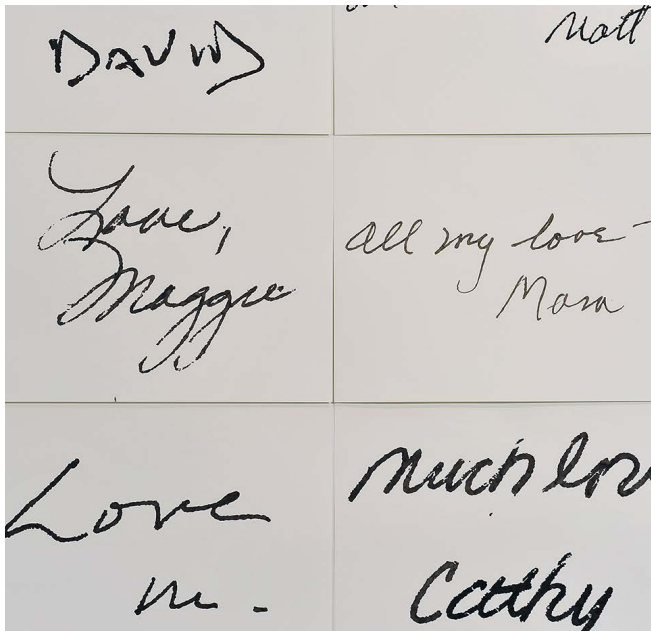 DAVID
Matt
Love,
Maggie
all my love -
Mom
Love
m.
much lov
Cathy